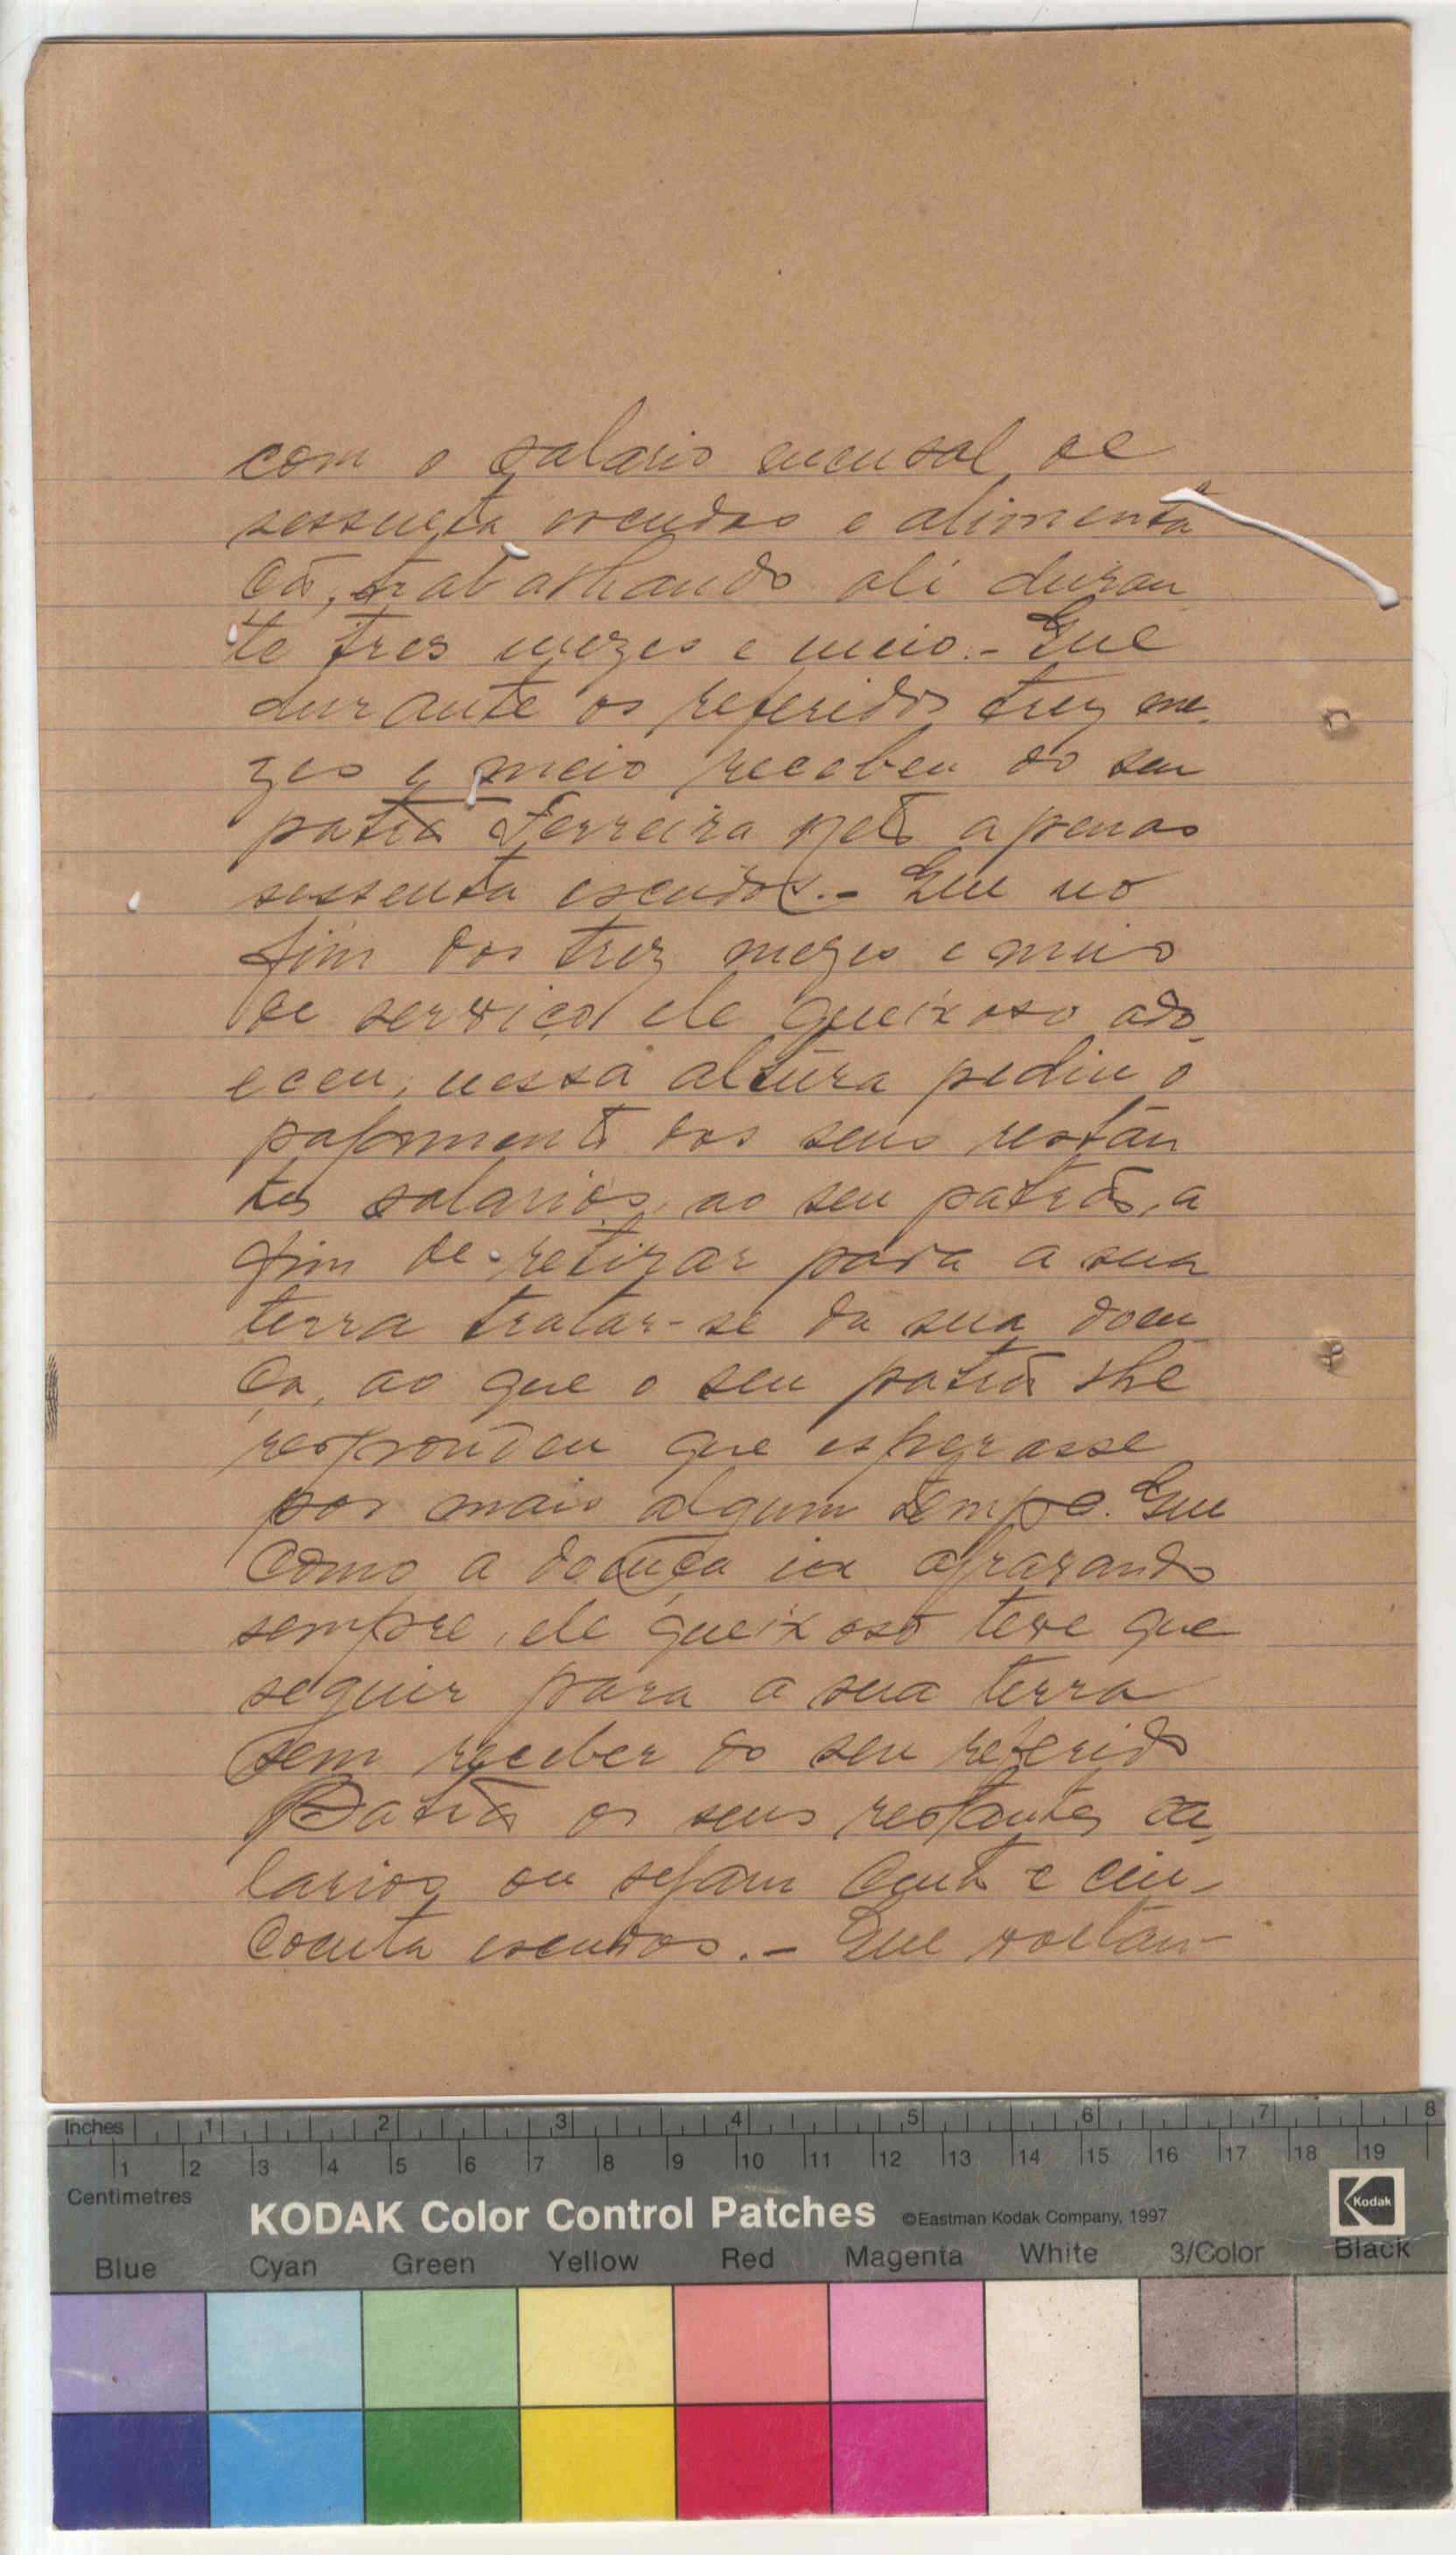 com o salario mensal de
sessenta escudos e alimenta
ção, trabalhando ali duran
te tres mezes e meio.- Que
durante os referidos trez me-
zes e meio recebeu do seu
patrão Ferreira neto apenas
sessenta escudos.- Que no
fim dos trez mezes e meio
de serviço ele queixoso ado-
eceu, nessa altura pediu o
pagamento dos seus restan
tes salarios, ao seu patrão, a
fim de retirar para a sua
terra tratar-se da sua doen
ça, ao que o seu patrão lhe
respondeu que esperasse
por mais algum tempo. Que
como a doença ia agravando
sempre, ele queixoso teve que
seguir para a sua terra
sem receber do seu referido
Patrão os seus restantes sa-
larios ou sejam Cento e cin-
coenta escudos.- Que voltan-
Inches 1 2 3 4 5 6 7 8
1 2 3 4 5 6 7 8 9 10 11 12 13 14 15 16 17 18 19
Centimetres
KODAK Color Control Patches ©Eastman Kodak Company, 1997 Kodak
Blue Cyan Green Yellow Red Magenta White 3/Color Black